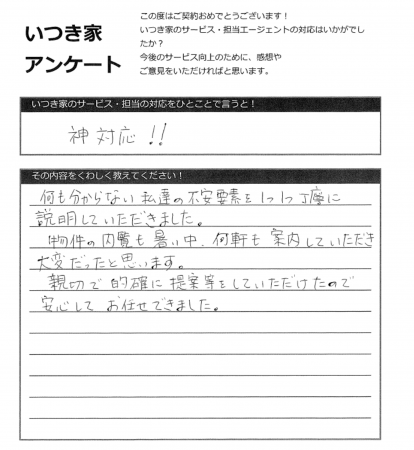 いつき家
アンケート
この度はご契約おめでとうございます！
いつき家のサービス・担当エージェントの対応はいかがでし
たか？
今後のサービス向上のために、感想や
ご意見をいただければと思います。
いつき家のサービス・担当の対応をひとことで言うと！
神対応!!
その内容をくわしく教えてください！
何も分からない私達の不安要素を1つ1つ丁寧に
説明していただきました。
物件の内覧も暑い中、何軒も案内していただき
大変だったと思います。
親切で的確に提案等をしていただけたので
安心してお任せできました。